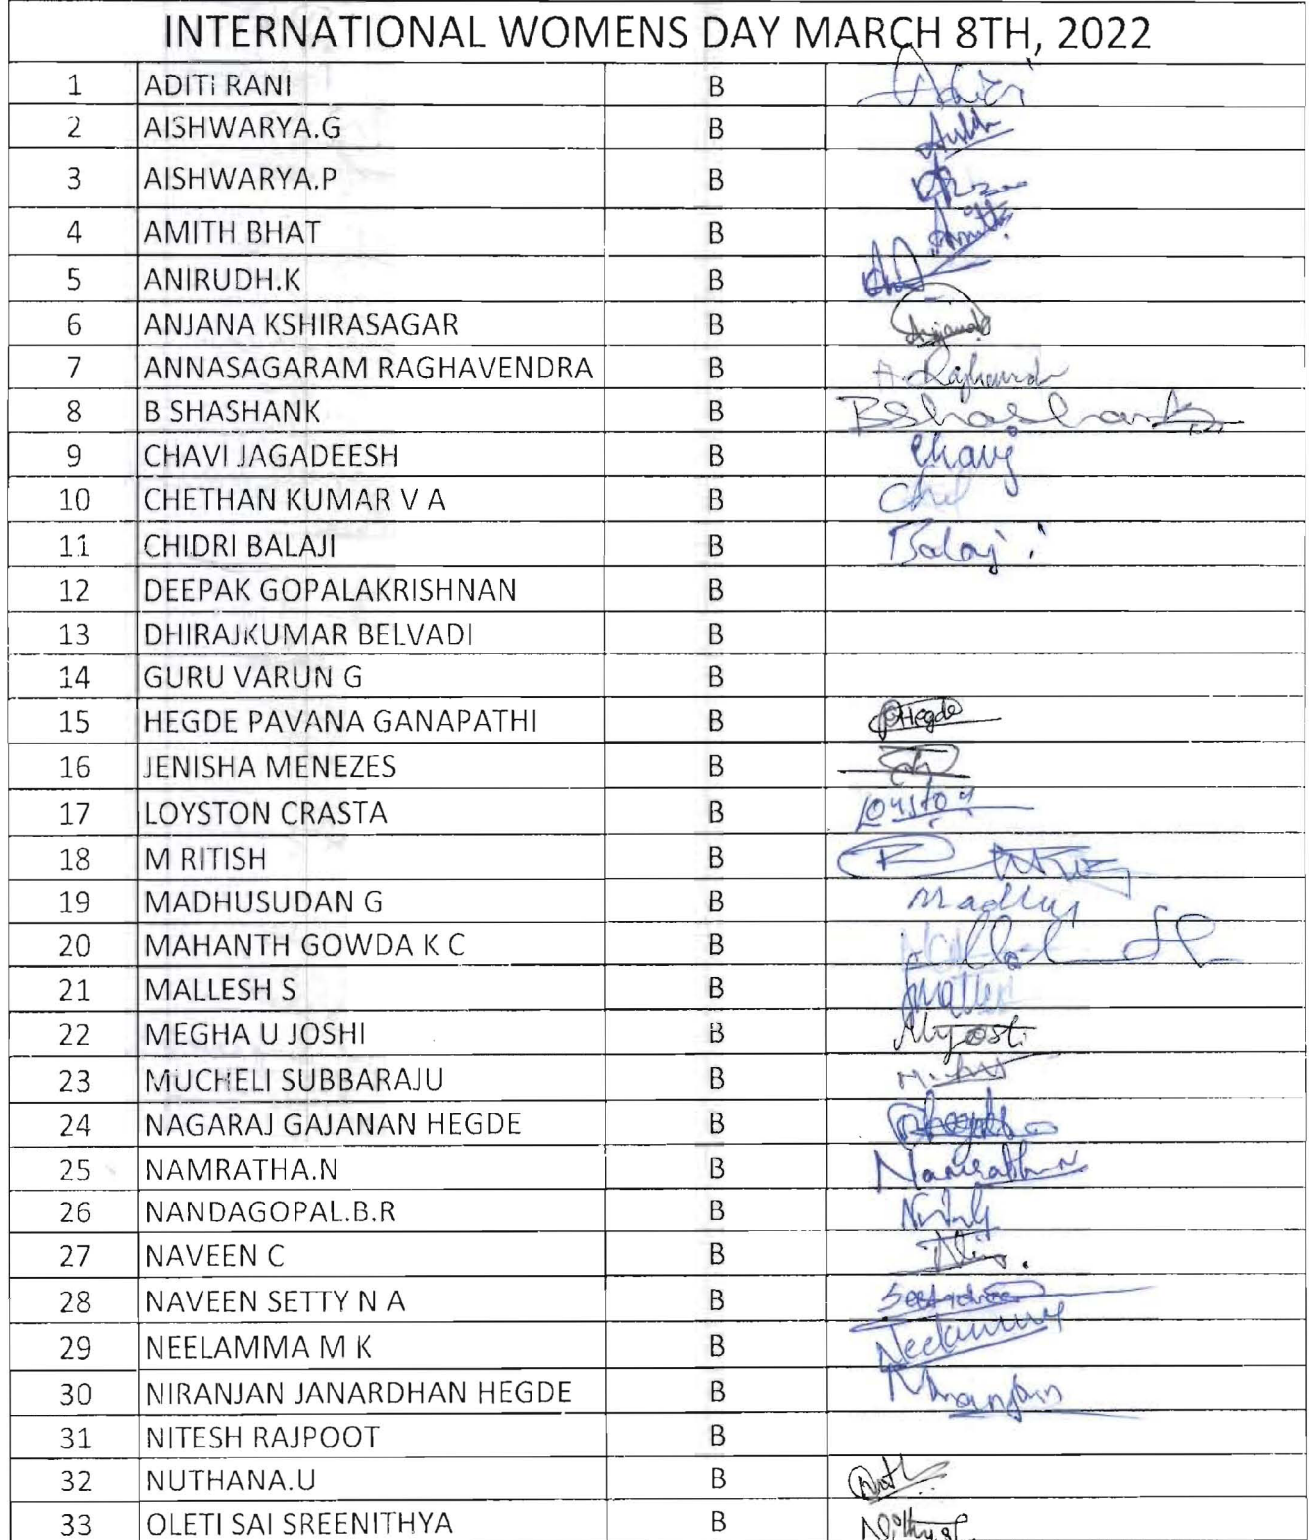 INTERNATIONAL WOMENS DAY MARCH 8TH, 2022
1 ADITI RANI B Aditi
2 AISHWARYA.G B
3 AISHWARYA.P B
4 AMITH BHAT B Amith
5 ANIRUDH.K B
6 ANJANA KSHIRASAGAR B Anjana
7 ANNASAGARAM RAGHAVENDRA B
8 B SHASHANK B BShashank
9 CHAVI JAGADEESH B Chavi
10 CHETHAN KUMAR V A B
11 CHIDRI BALAJI B Balaji
12 DEEPAK GOPALAKRISHNAN B
13 DHIRAJKUMAR BELVADI B
14 GURU VARUN G B
15 HEGDE PAVANA GANAPATHI B PHegde
16 JENISHA MENEZES B
17 LOYSTON CRASTA B Loyston
18 M RITISH B
19 MADHUSUDAN G B
20 MAHANTH GOWDA K C B
21 MALLESH S B
22 MEGHA U JOSHI B
23 MUCHELI SUBBARAJU B
24 NAGARAJ GAJANAN HEGDE B
25 NAMRATHA.N B Namratha N
26 NANDAGOPAL.B.R B
27 NAVEEN C B
28 NAVEEN SETTY N A B
29 NEELAMMA M K B Neelamma
30 NIRANJAN JANARDHAN HEGDE B Niranjan
31 NITESH RAJPOOT B
32 NUTHANA.U B
33 OLETI SAI SREENITHYA B